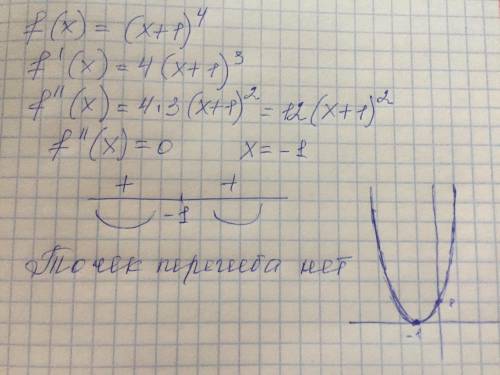 f(x) = (x+1)^4
f'(x) = 4(x+1)^3
f''(x) = 4·3(x+1)^2 = 12(x+1)^2
f''(x) = 0 x = -1
+ +
-1
Точек перегиба нет
1
-1